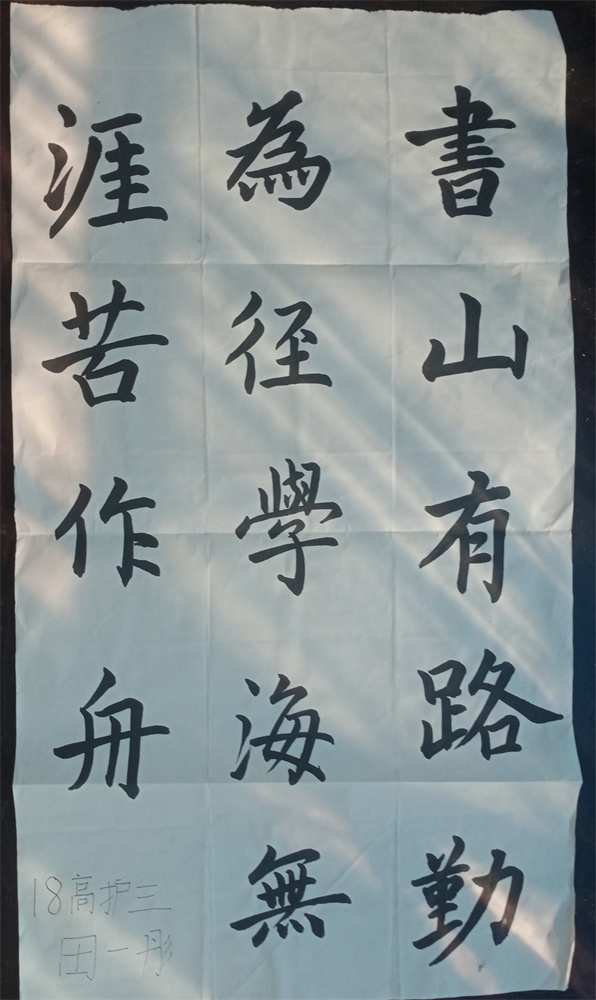 書山有路勤
為徑學海無
涯苦作舟
18高护三
田一彤